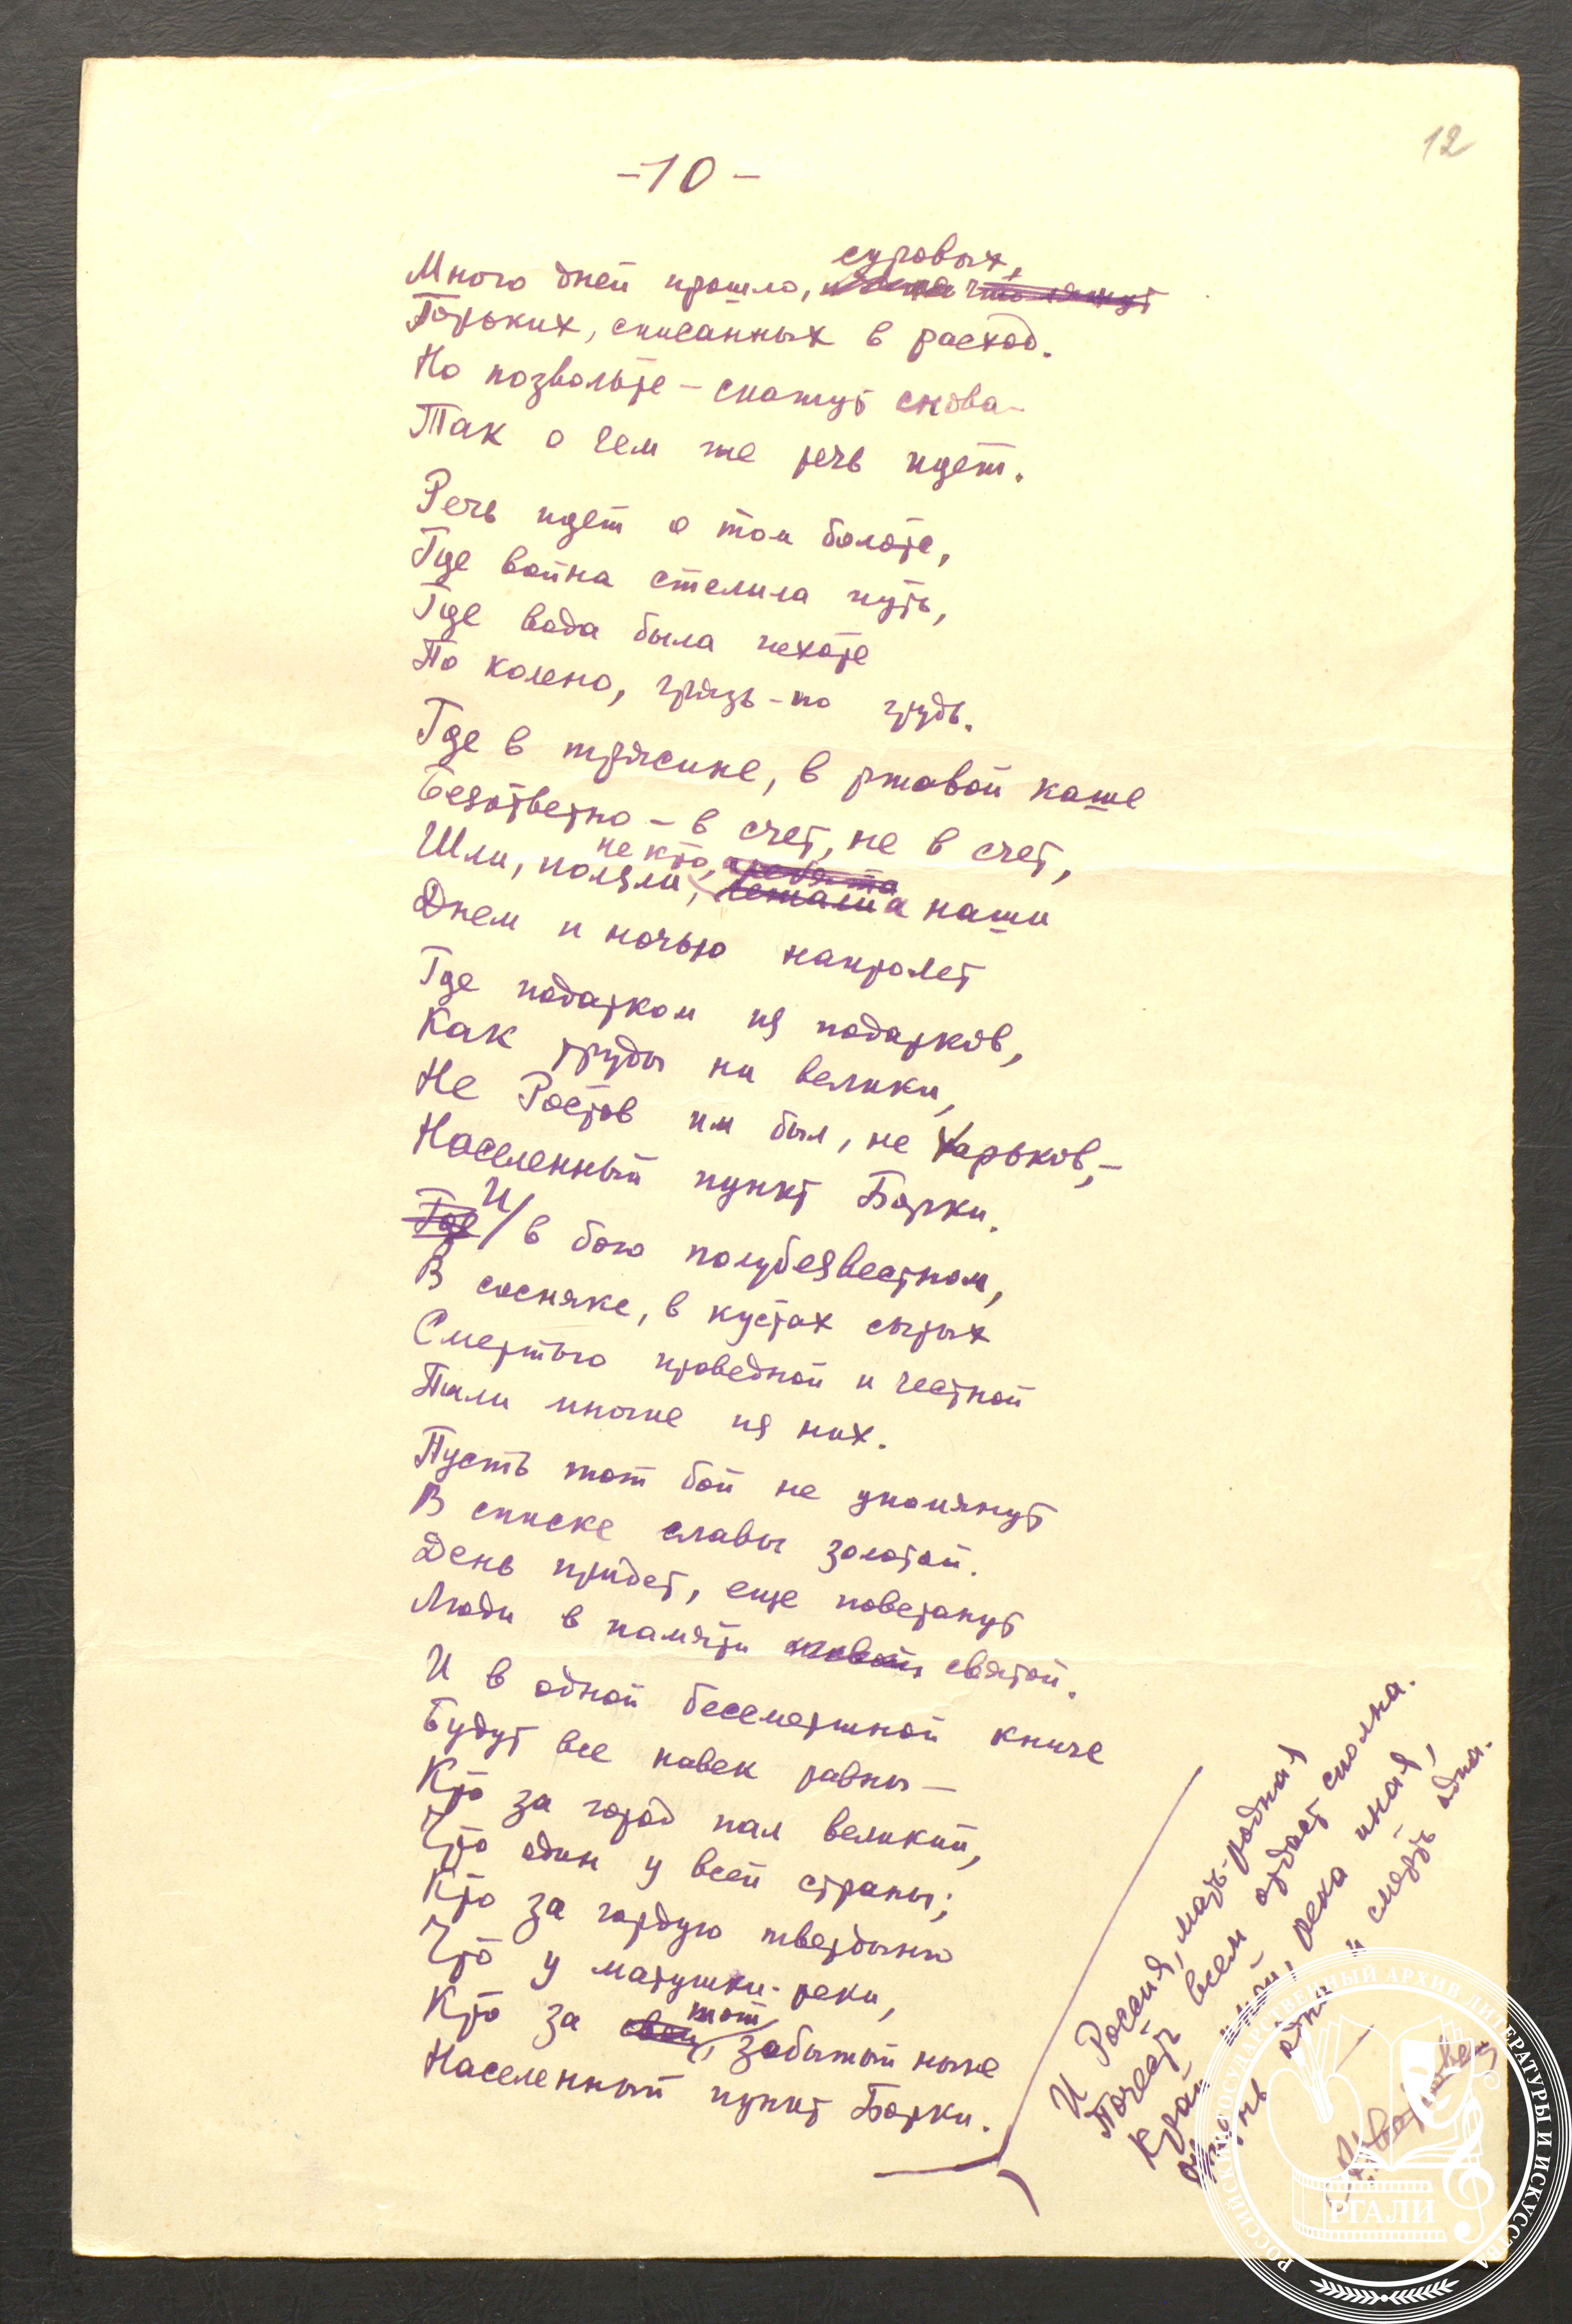 12
-10-
Много дней прошло, суровых,
Горьких, списанных в расход.
Но позвольте - скажут снова -
Так о чем же речь идет.
Речь идет о том болоте,
Где война стелила путь,
Где вода была пехоте
По колено, грязь - по грудь.
Где в трясине, в ржавой каше
Безответно - в счет, не в счет,
Шли, ползли, лежали наши
не кто, а ребята
Днем и ночью напролет
Где подарком из подарков,
Как труды ни велики,
Не Ростов им был, не Харьков, -
Населенный пункт Борки.
Где И в бою полубезвестном,
В сосняке, в кустах сырых
Смертью праведной и честной
Пали многие из них.
Пусть тот бой не упомянут
В списке славы золотой.
День придет, еще повстанут
Люди в памяти живой, святой.
И в одной бессмертной книге
Будут все навек равны -
Кто за город пал великий,
Что один у всей страны;
Кто за гордую твердыню
Что у матушки-реки,
Кто за тот, забытый ныне
Населенный пункт Борки.
И Россия, мать-родная
Почесть всем отдаст сполна.
Край иной, река иная,
Жизнь одна и смерть одна.
А. Твардовский
РОССИЙСКИЙ ГОСУДАРСТВЕННЫЙ АРХИВ ЛИТЕРАТУРЫ И ИСКУССТВА
РГАЛИ